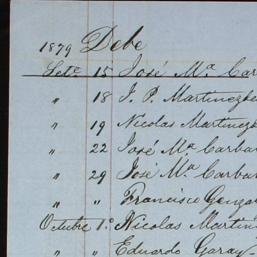 1879 Debe
Sete. 15 José Ma. Car
" 18 J. P. Martinez
" 19 Nicolas Martinez
" 22 José Ma. Carba
" 29 José Ma. Carba
" " Francisco Gonza
Octubre 1.º Nicolas Martin
" " Eduardo Garay